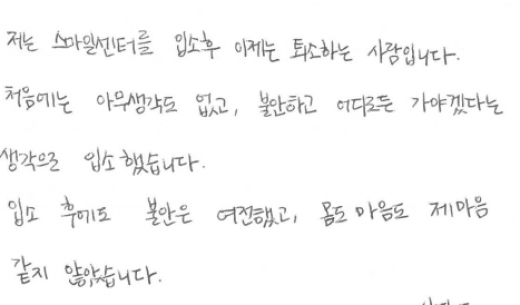 저는 스마일센터를 입소후 이제는 퇴소하는 사람입니다.
처음에는 아무생각도 없고, 불안하고 어디로든 가야겠다는
생각으로 입소했습니다.
입소 후에도 불안은 여전했고, 몸도 마음도 제마음
같지 않았습니다.